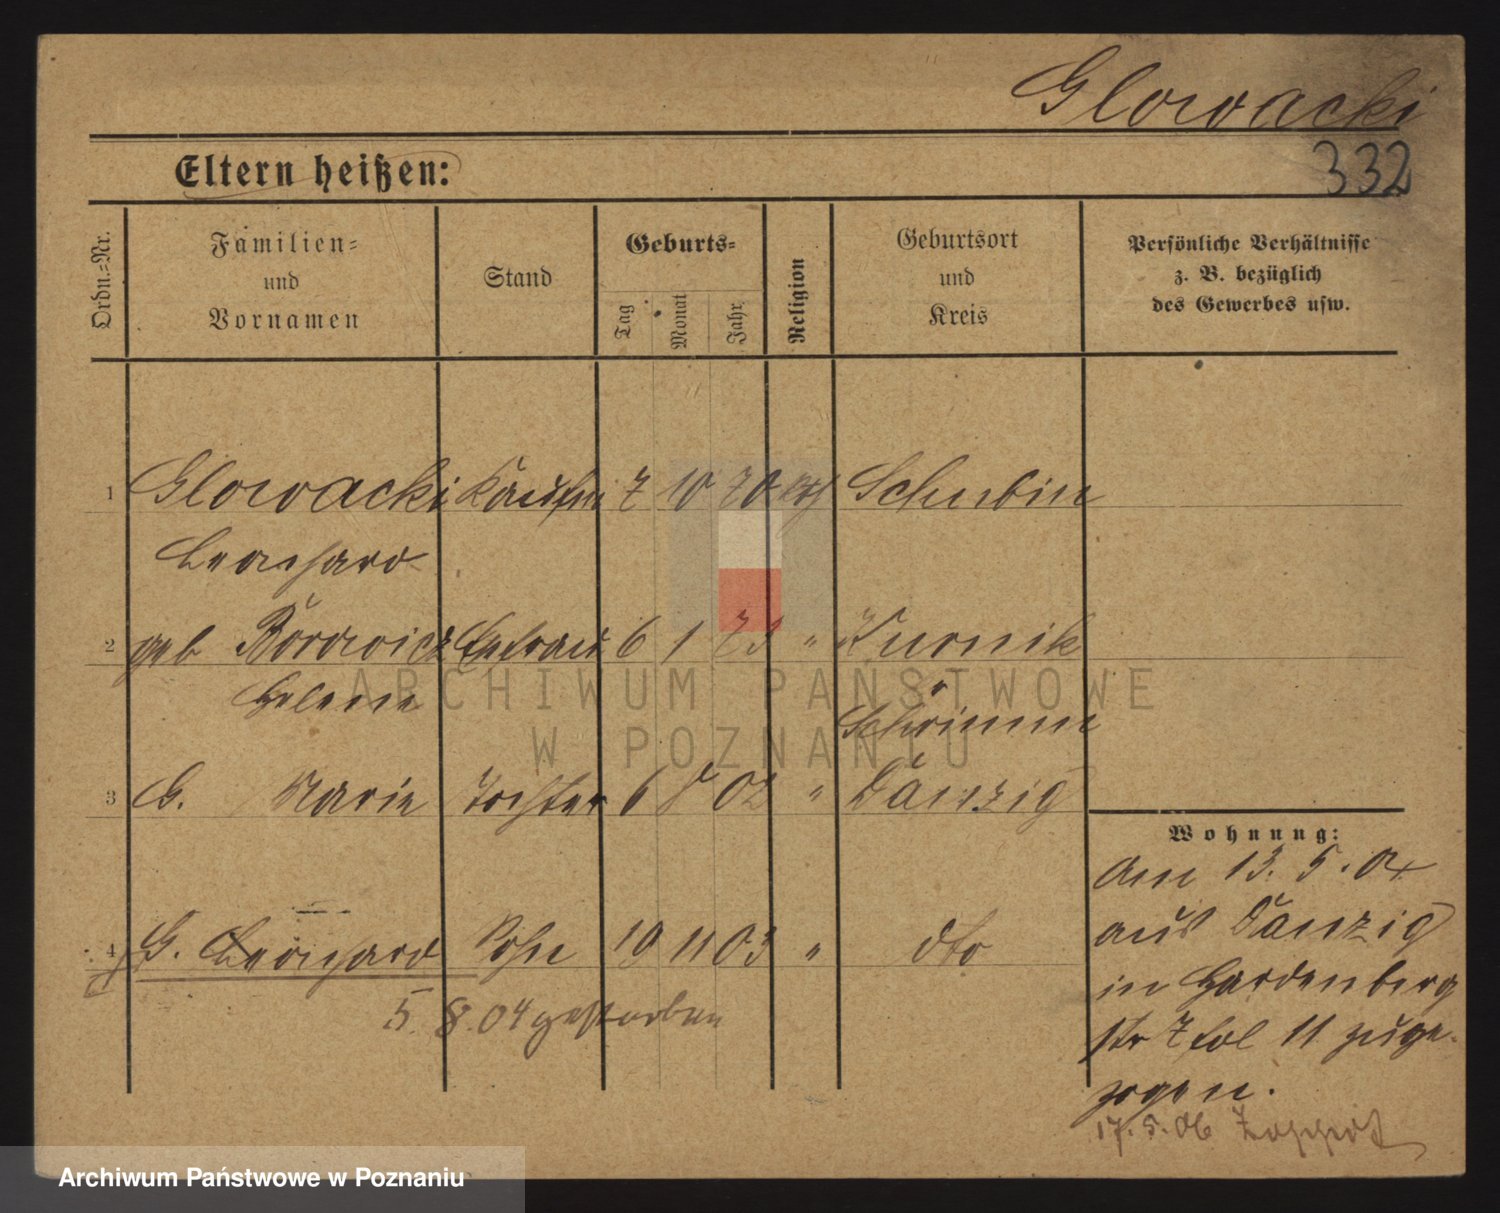 Glowacki
332
Eltern heißen:
Ordn.=Nr.
Familien=
und
Vornamen
Stand
Geburts=
Tag
Monat
Jahr
Religion
Geburtsort
und
Kreis
Persönliche Verhältnisse
z. B. bezüglich
des Gewerbes usw.
1 Glowacki Kaufm 7 10 70 kth Schubin
Leonhard
2 geb Borowicz Ehefrau 6 1 73 " Kurnik
Helene Schrimm
3 G. Marie Tochter 6 8 02 " Danzig
4 G. Leonhard Sohn 19 11 03 " dto
5. 8. 04 gestorben
Wohnung:
Am 13. 5. 04
aus Danzig
in Hardenberg
str 7 fol 11 zuge-
zogen.
17. 5. 06 Zoppot
ARCHIWUM PAŃSTWOWE
W POZNANIU
Archiwum Państwowe w Poznaniu